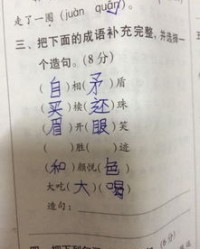 走了一圈(juàn quān)
三、把下面的成语补充完整，并选择一
个造句。(8分)
(自)相(矛)盾
(买)椟(还)珠
(眉)开(眼)笑
( )胜( )
(和)颜悦(色)
大吃(大)(喝)
造句：